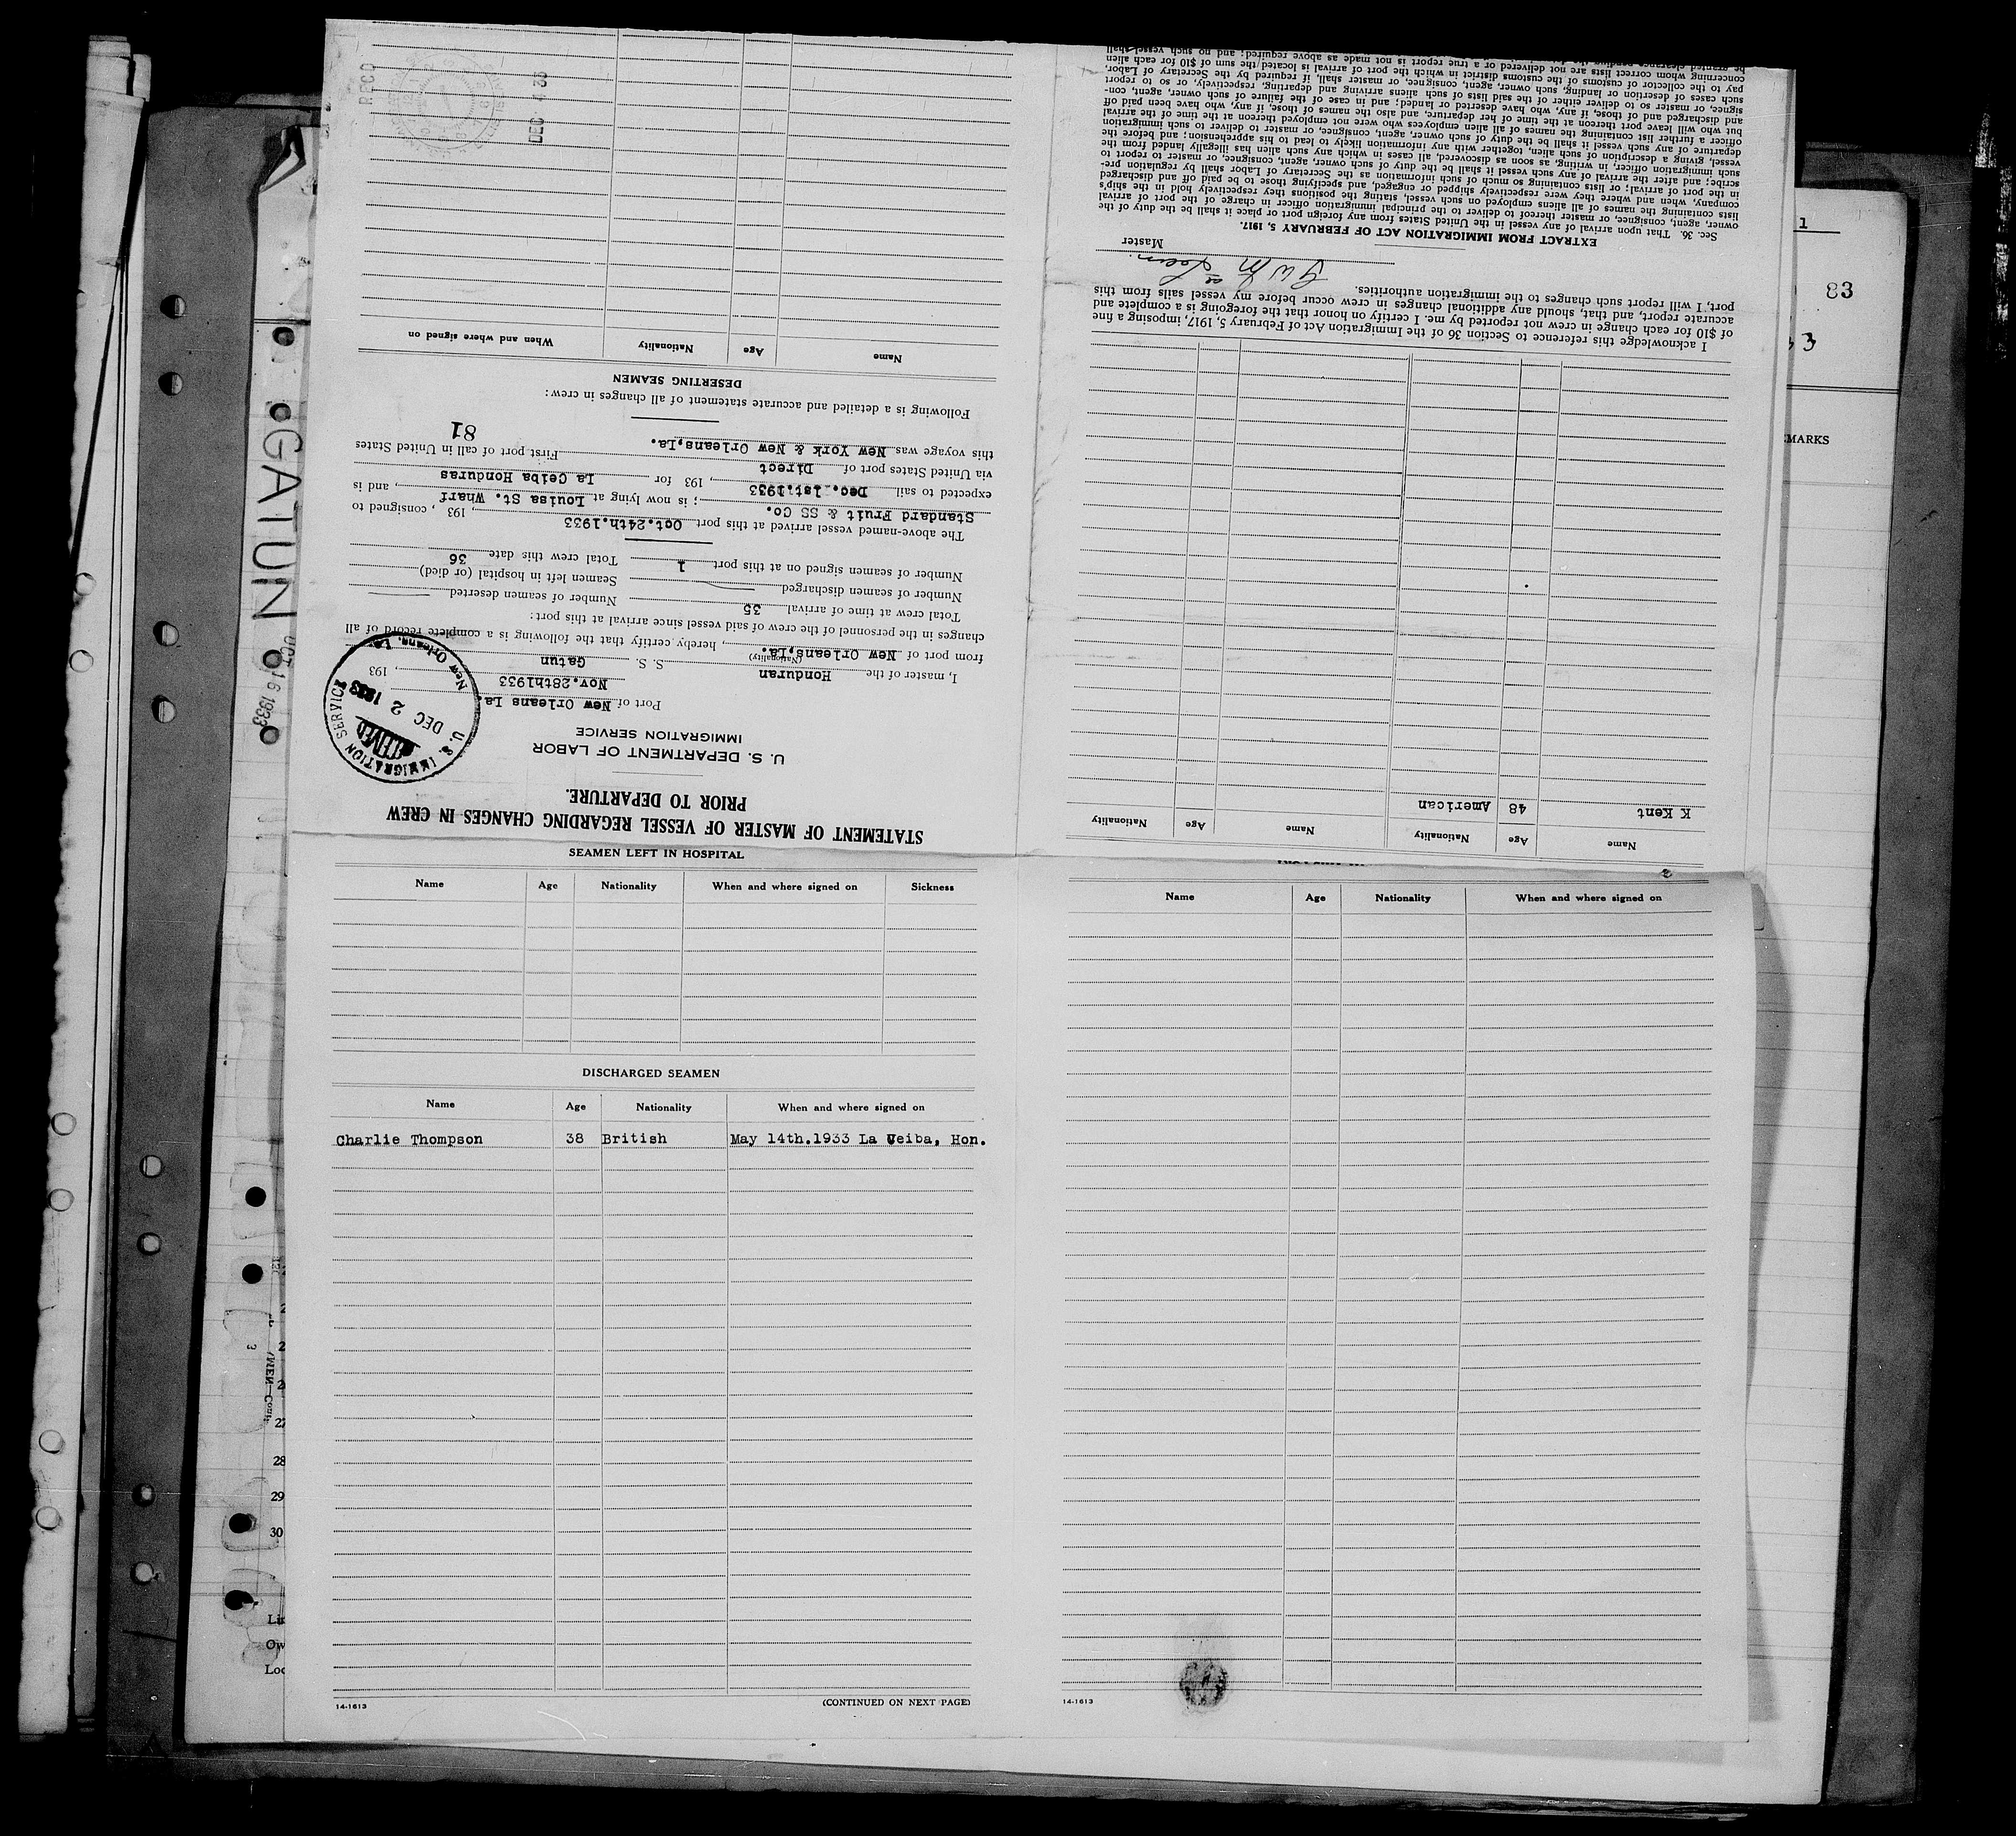 STATEMENT OF MASTER OF VESSEL REGARDING CHANGES IN CREW
PRIOR TO DEPARTURE.
U. S. DEPARTMENT OF LABOR
IMMIGRATION SERVICE
Port of New Orleans La.
Nov.28th1933, 193
U. S. IMMIGRATION SERVICE
RECEIVED
DEC 2 1933
New Orleans, La.
I, master of the Honduran S. S. Gatun
(Nationality)
from port of New Orleans,La., hereby certify that the following is a complete record of all
changes in the personnel of the crew of said vessel since arrival at this port:
Total crew at time of arrival 35 Number of seamen deserted
Number of seamen discharged Seamen left in hospital (or died)
Number of seamen signed on at this port 1 Total crew this date 36
The above-named vessel arrived at this port Oct.24th.1933, 193 , consigned to
Standard Fruit & SS Co. ; is now lying at Louisa St. Wharf, and is
expected to sail Dec. 1st.1933, 193 for La Ceiba Honduras
via United States port of Direct First port of call in United States
this voyage was New York & New Orleans,La. 81
Following is a detailed and accurate statement of all changes in crew:
DESERTING SEAMEN
Name Age Nationality When and where signed on
REC'D
DEC 4 33
Name Age Nationality Name Age Nationality
K Kent 48 American
I acknowledge this reference to Section 36 of the Immigration Act of February 5, 1917, imposing a fine
of $10 for each change in crew not reported by me. I certify on honor that the foregoing is a complete and
accurate report, and that, should any additional changes in crew occur before my vessel sails from this
port, I will report such changes to the immigration authorities.
Master
EXTRACT FROM IMMIGRATION ACT OF FEBRUARY 5, 1917.
Sec. 36. That upon arrival of any vessel in the United States from any foreign port or place it shall be the duty of the
owner, agent, consignee, or master thereof to deliver to the principal immigration officer in charge of the port of arrival
lists containing the names of all aliens employed on such vessel, stating the positions they respectively hold in the ship's
company, when and where they were respectively shipped or engaged, and specifying those to be paid off and discharged
in the port of arrival; or lists containing so much of such information as the Secretary of Labor shall by regulation pre-
scribe; and after the arrival of any such vessel it shall be the duty of such owner, agent, consignee, or master to report to
such immigration officer, in writing, as soon as discovered, all cases in which any such alien has illegally landed from the
vessel, giving a description of such alien, together with any information likely to lead to his apprehension; and before the
departure of any such vessel it shall be the duty of such owner, agent, consignee, or master to deliver to such immigration
officer a further list containing the names of all alien employees who were not employed thereon at the time of the arrival
but who will leave port thereon at the time of her departure, and also the names of those, if any, who have been paid off
and discharged and of those, if any, who have deserted or landed; and in case of the failure of such owner, agent, con-
signee, or master so to deliver either of the said lists of such aliens arriving and departing, respectively, or so to report
such cases of desertion or landing, such owner, agent, consignee, or master, shall, if required by the Secretary of Labor,
pay to the collector of customs of the customs district in which the port of arrival is located the sum of $10 for each alien
concerning whom correct lists are not delivered or a true report is not made as above required; and no such vessel shall
SEAMEN LEFT IN HOSPITAL
Name Age Nationality When and where signed on Sickness
DISCHARGED SEAMEN
Name Age Nationality When and where signed on
Charlie Thompson 38 British May 14th.1933 La Ceiba, Hon.
14-1613 (CONTINUED ON NEXT PAGE)
2
Name Age Nationality When and where signed on
14-1613
GATUN
OCT 16 1933
1
83
MARKS
28
29
30